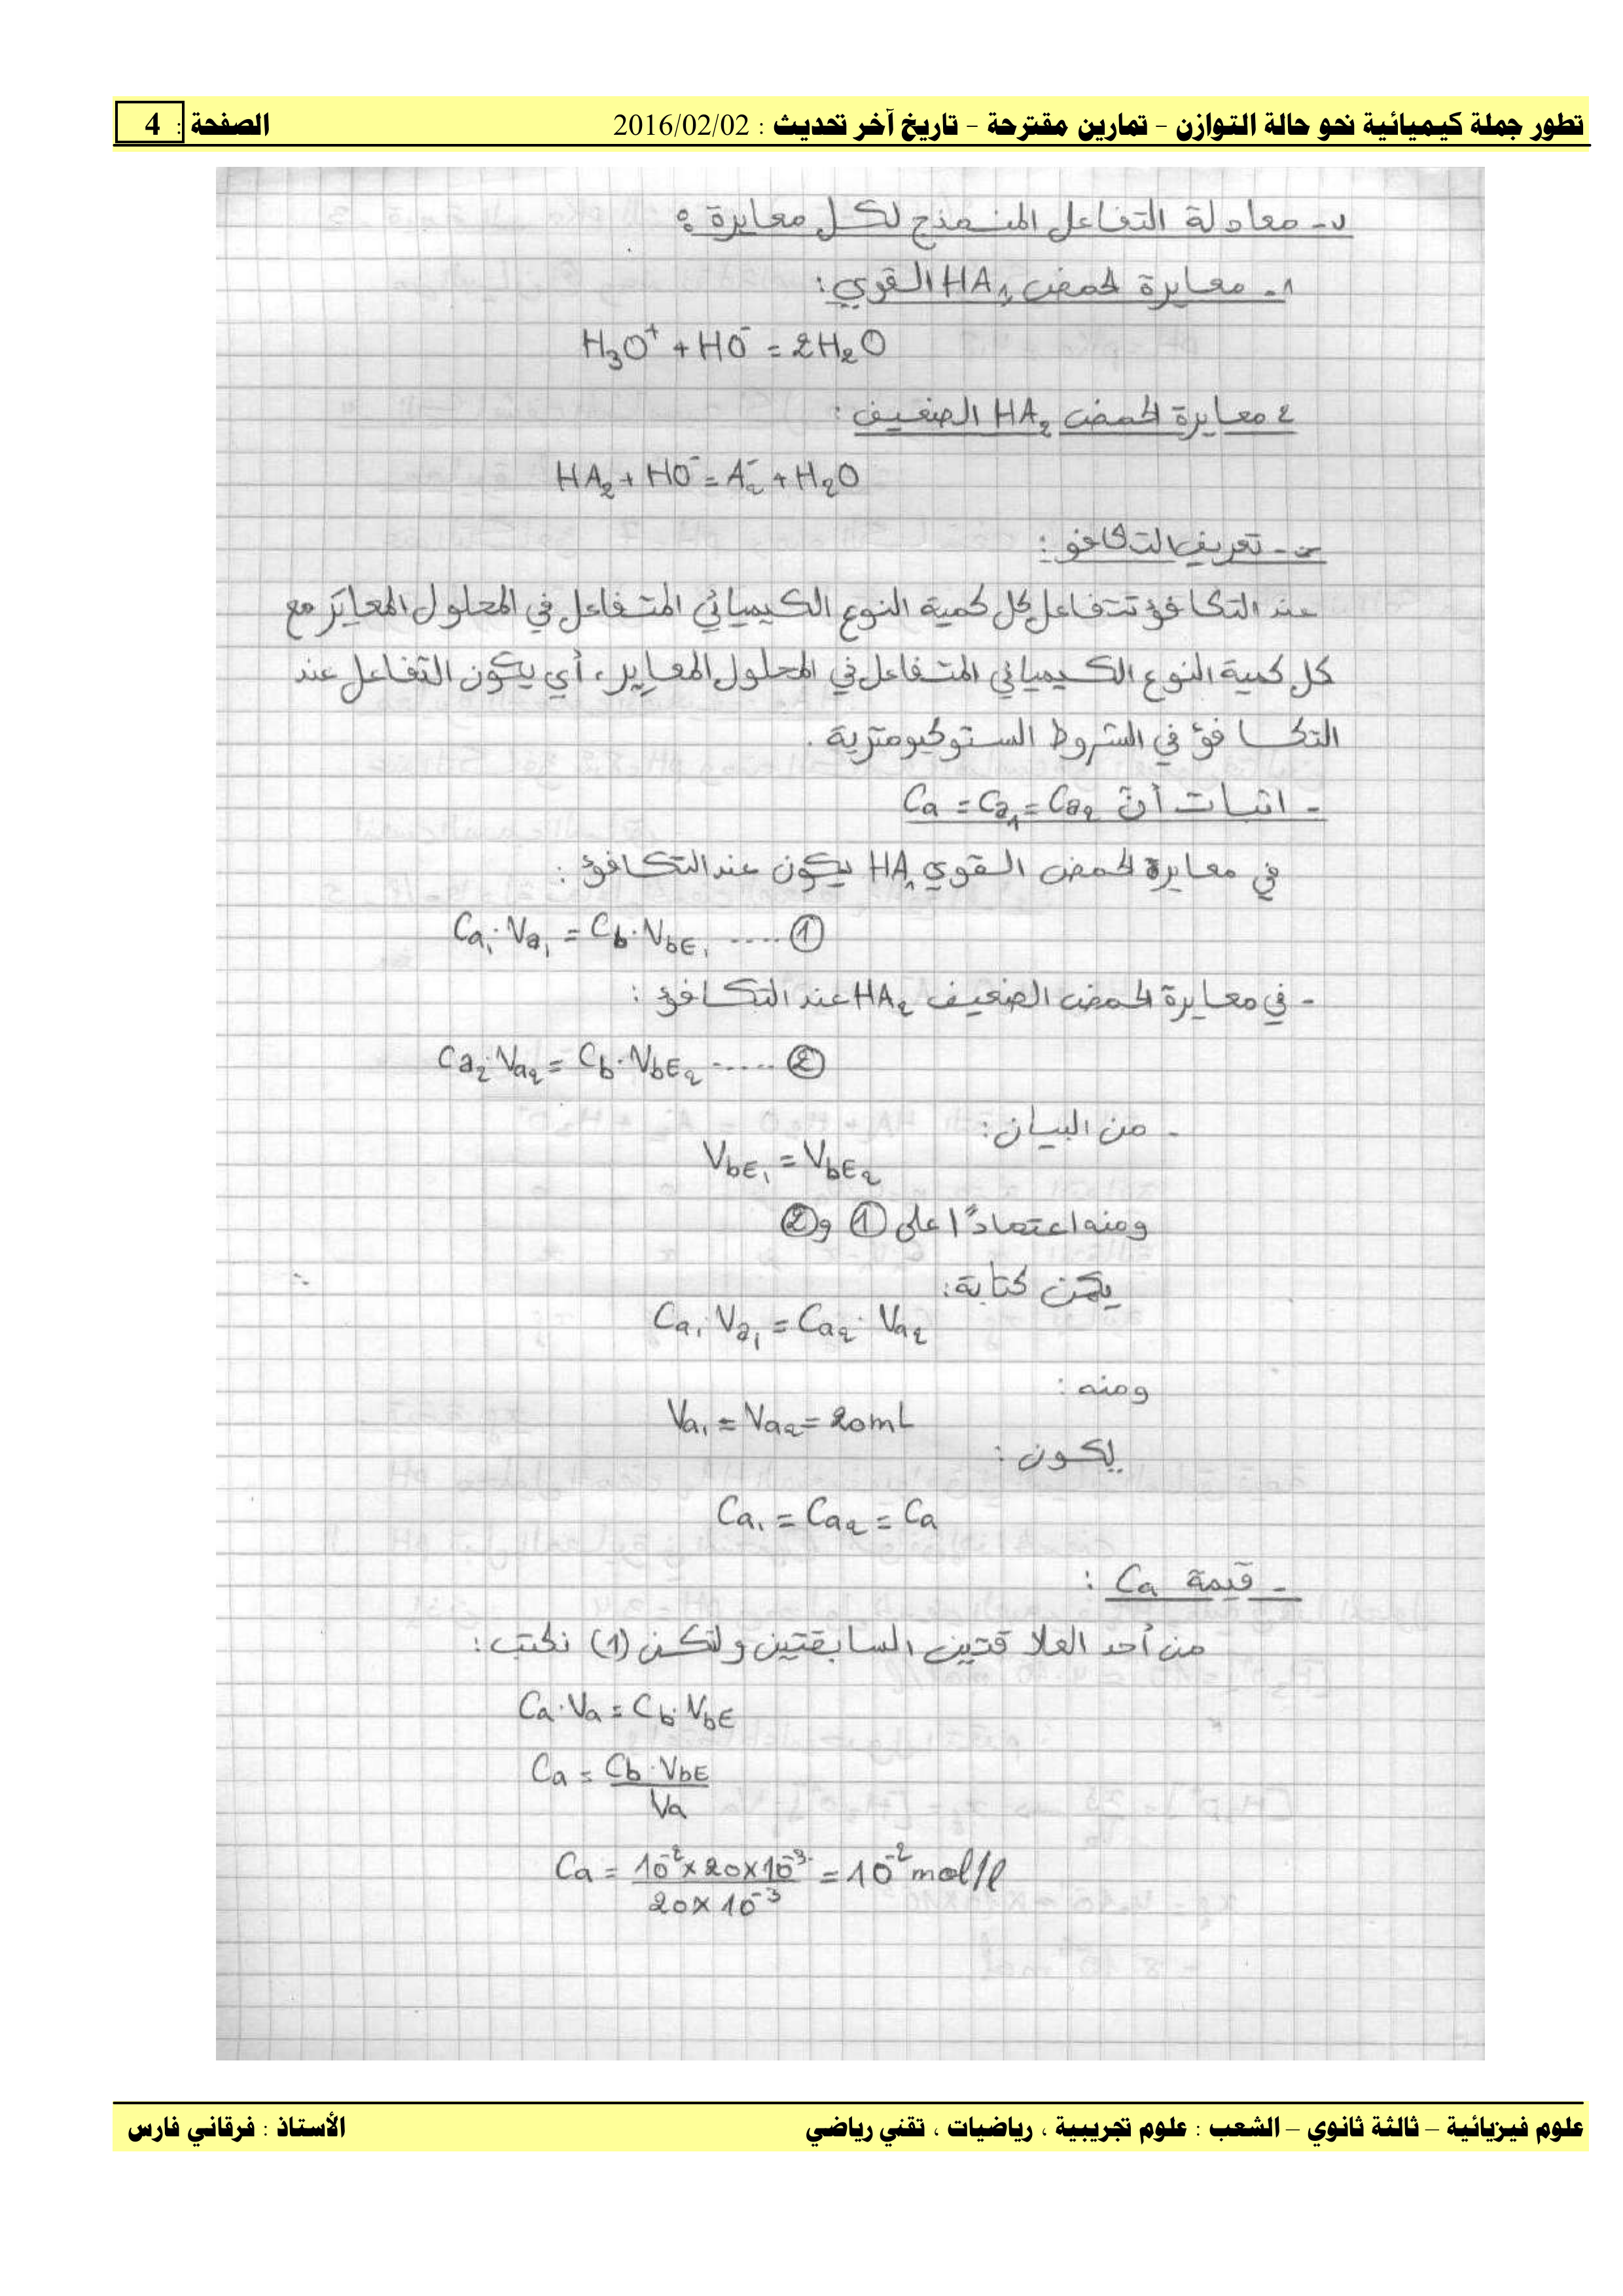 تطور جملة كيميائية نحو حالة التوازن - تمارين مقترحة - تاريخ آخر تحديث : 2016/02/02 الصفحة : 4
ب- معادلة التفاعل المنمذج لكل معايرة :
1- معايرة لحمض HA₁ القوي :
H₃O⁺ + HO⁻ = 2H₂O
2 معايرة لحمض HA₂ الضعيف :
HA₂ + HO⁻ = A₂⁻ + H₂O
جـ - تعريف التكافؤ :
عند التكافؤ تتفاعل كل كمية النوع الكيميائي المتفاعل في المحلول المعايَر مع
كل كمية النوع الكيميائي المتفاعل في المحلول المعايِر، أي يكون التفاعل عند
التكافؤ في الشروط الستوكيومترية .
- اثبات أن Ca = Ca₁ = Ca₂
في معايرة لحمض القوي HA₁ يكون عند التكافؤ :
Ca₁ . Va₁ = Cb . VbE₁ ..... ①
- في معايرة لحمض الضعيف HA₂ عند التكافؤ :
Ca₂ . Va₂ = Cb . VbE₂ ..... ②
- من البيان :
VbE₁ = VbE₂
ومنه اعتمادًا على ① و ②
يمكن كتابة :
Ca₁ . Va₁ = Ca₂ . Va₂
ومنه :
Va₁ = Va₂ = 20mL
يكون :
Ca₁ = Ca₂ = Ca
- قيمة Ca :
من أحد العلاقتين السابقتين ولتكن (1) نكتب :
Ca . Va = Cb . VbE
Ca = Cb . VbE / Va
Ca = 10⁻² × 20 × 10⁻³ / 20 × 10⁻³ = 10⁻² mol/l
علوم فيزيائية – ثالثة ثانوي – الشعب : علوم تجريبية ، رياضيات ، تقني رياضي الأستاذ : فرقاني فارس